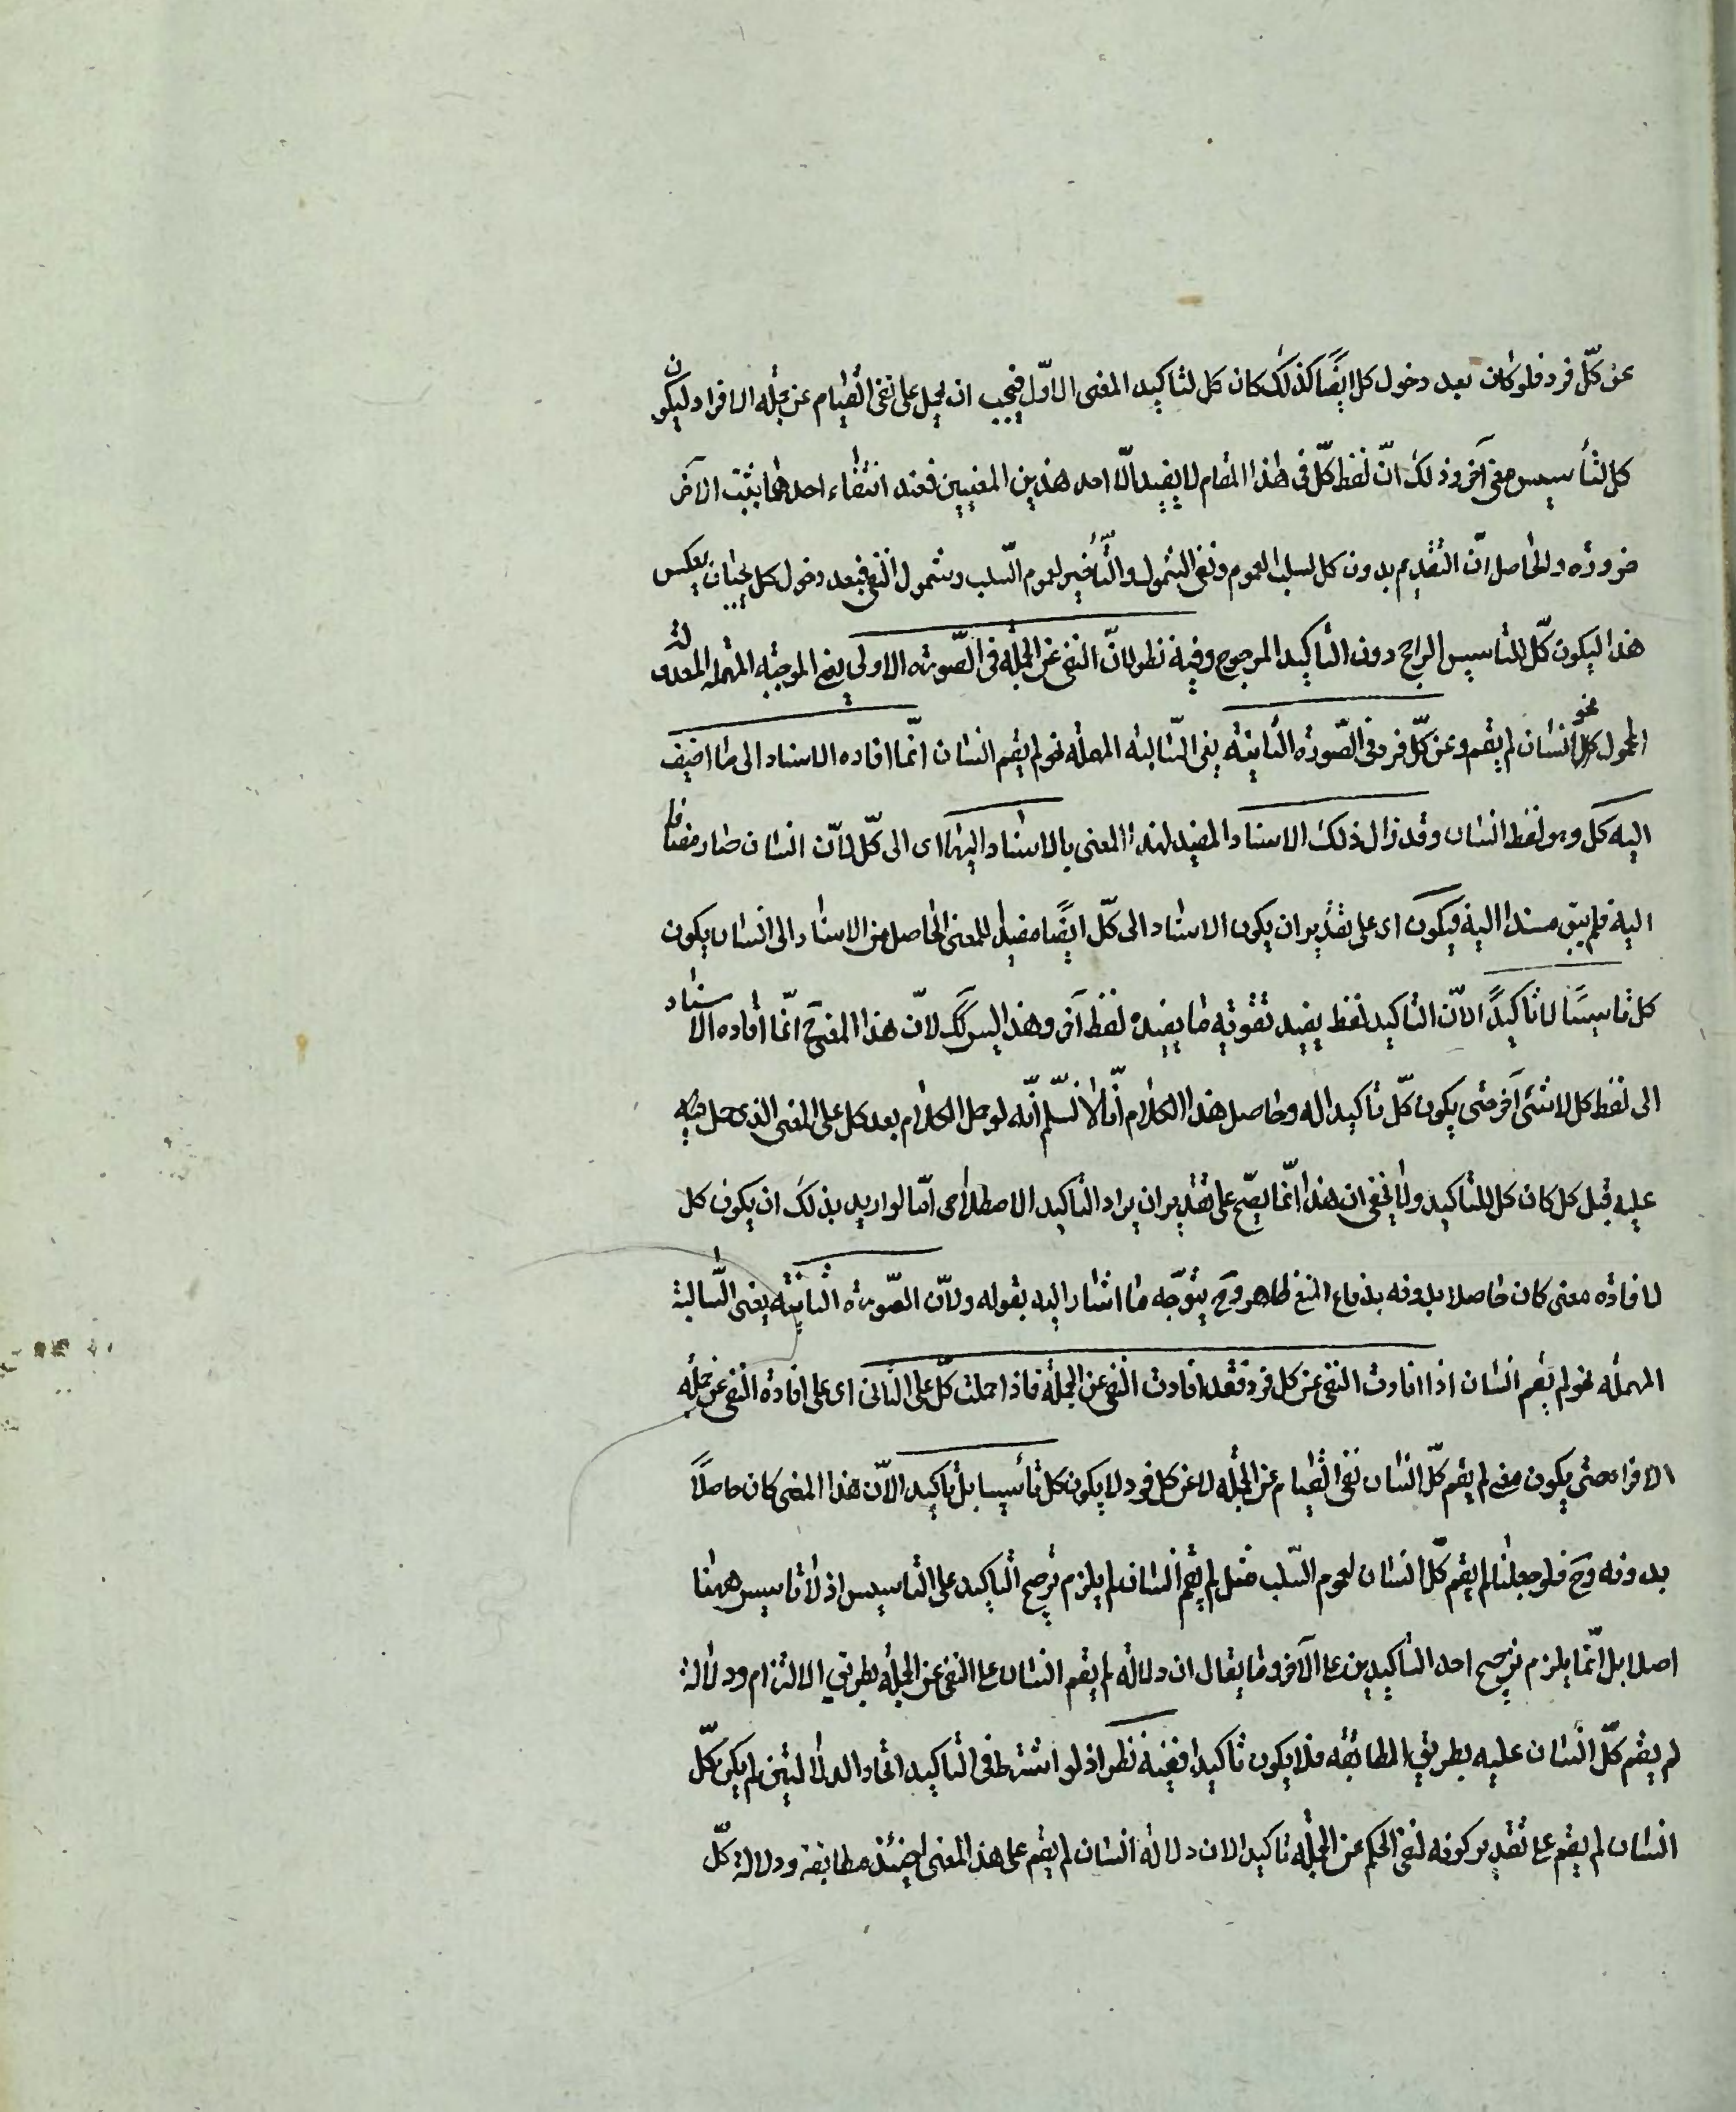 عن كلّ فرد فلو كان بعد دخول كل ايضًا كذلك كان كل لتاكيد المعنى الاوّل فيجب ان يحمل على نفى القيام عن جملة الافراد ليكون
كل لتأسيس معنى آخر وذلك انّ لفظ كلّ فى هذا المقام لا يفيد الّا احد هذين المعنيين فعند انتفاء احدهما يثبت الآخر
ضرورة والحاصل انّ التقديم بدون كل لسلب العموم ونفى الشمول والتّأخير لعموم السّلب وشمول النفى فبعد دخول كل يجب ان يعكس
هذا ليكون كلّ للتاسيس الراجح دون التاكيد المرجوح وفيه نظر لانّ النفى عن الجملة فى الصّورة الاولى يعنى الموجبة المهملة المعدولة
المحمول نحو انسان لم يقم وعن كلّ فرد فى الصّورة الثانية يعنى السّالبة المهملة نحو لم يقم انسان انّما افاده الاسناد الى ما اضيف
اليه كل وهو لفظ انسان وقد زال ذلك الاسناد المفيد لهذا المعنى بالاسناد اليها اى الى كلّ لانّ انسان صار مضافا
اليه فلم يبق مسندا اليه فيكون اى على تقدير ان يكون الاسناد الى كلّ ايضًا مفيدا للمعنى الحاصل من الاسناد الى انسان يكون
كل تاسيسًا لا تاكيدًا لانّ التاكيد لفظ يفيد تقوية ما يفيده لفظ آخر وهذا ليس كك لانّ هذا المعنى ح انّما افاده الاسناد
الى لفظ كل لا شئ آخر حتى يكون كلّ تاكيدا له وحاصل هذا الكلام انّا لا نسلّم انّه لو حمل الكلام بعد كل على المعنى الذى حمل
عليه قبل كل كان كل للتاكيد ولا يخفى ان هذا انّما يصّح على تقدير ان يراد التاكيد الاصطلاحى امّا لو اريد بذلك ان يكون كل
لافادة معنى كان حاصلا بدونه فاندفاع المنع ظاهر وح يتوجّه ما اشار اليه بقوله ولانّ الصّورة الثانية يعنى السّالبة
المهملة نحو لم يقم انسان اذا افادت النفى عن كل فرد فقد افادت النفى عن الجملة فاذا حملت كلّ على الثانى اى على افادة النفى عن جملة
الافراد حتى يكون معنى لم يقم كلّ انسان نفى القيام عن الجملة لا عن كل فرد لا يكون كل تأسيسا بل تاكيدا لانّ هذا المعنى كان حاصلاً
بدونه وح فلو جعلنا لم يقم كلّ انسان لعموم السّلب مثل لم يقم انسان لم يلزم ترجيح التاكيد على التاسيس اذ لا تاسيس ههنا
اصلا بل انّما يلزم ترجيح احد التاكيدين على الآخر وما يقال ان دلالة لم يقم انسان على النفى عن الجملة بطريق الالتزام ودلالة
لم يقم كلّ انسان عليه بطريق المطابقة فلا يكون تاكيدا ففيه نظر اذ لو اشترط فى التاكيد اتحاد الدلالتين لم يكن كلّ
انسان لم يقم على تقدير كونه لنفى الحكم عن الجملة تاكيدا لان دلالة انسان لم يقم على هذا المعنى مطابقة ودلالة كلّ